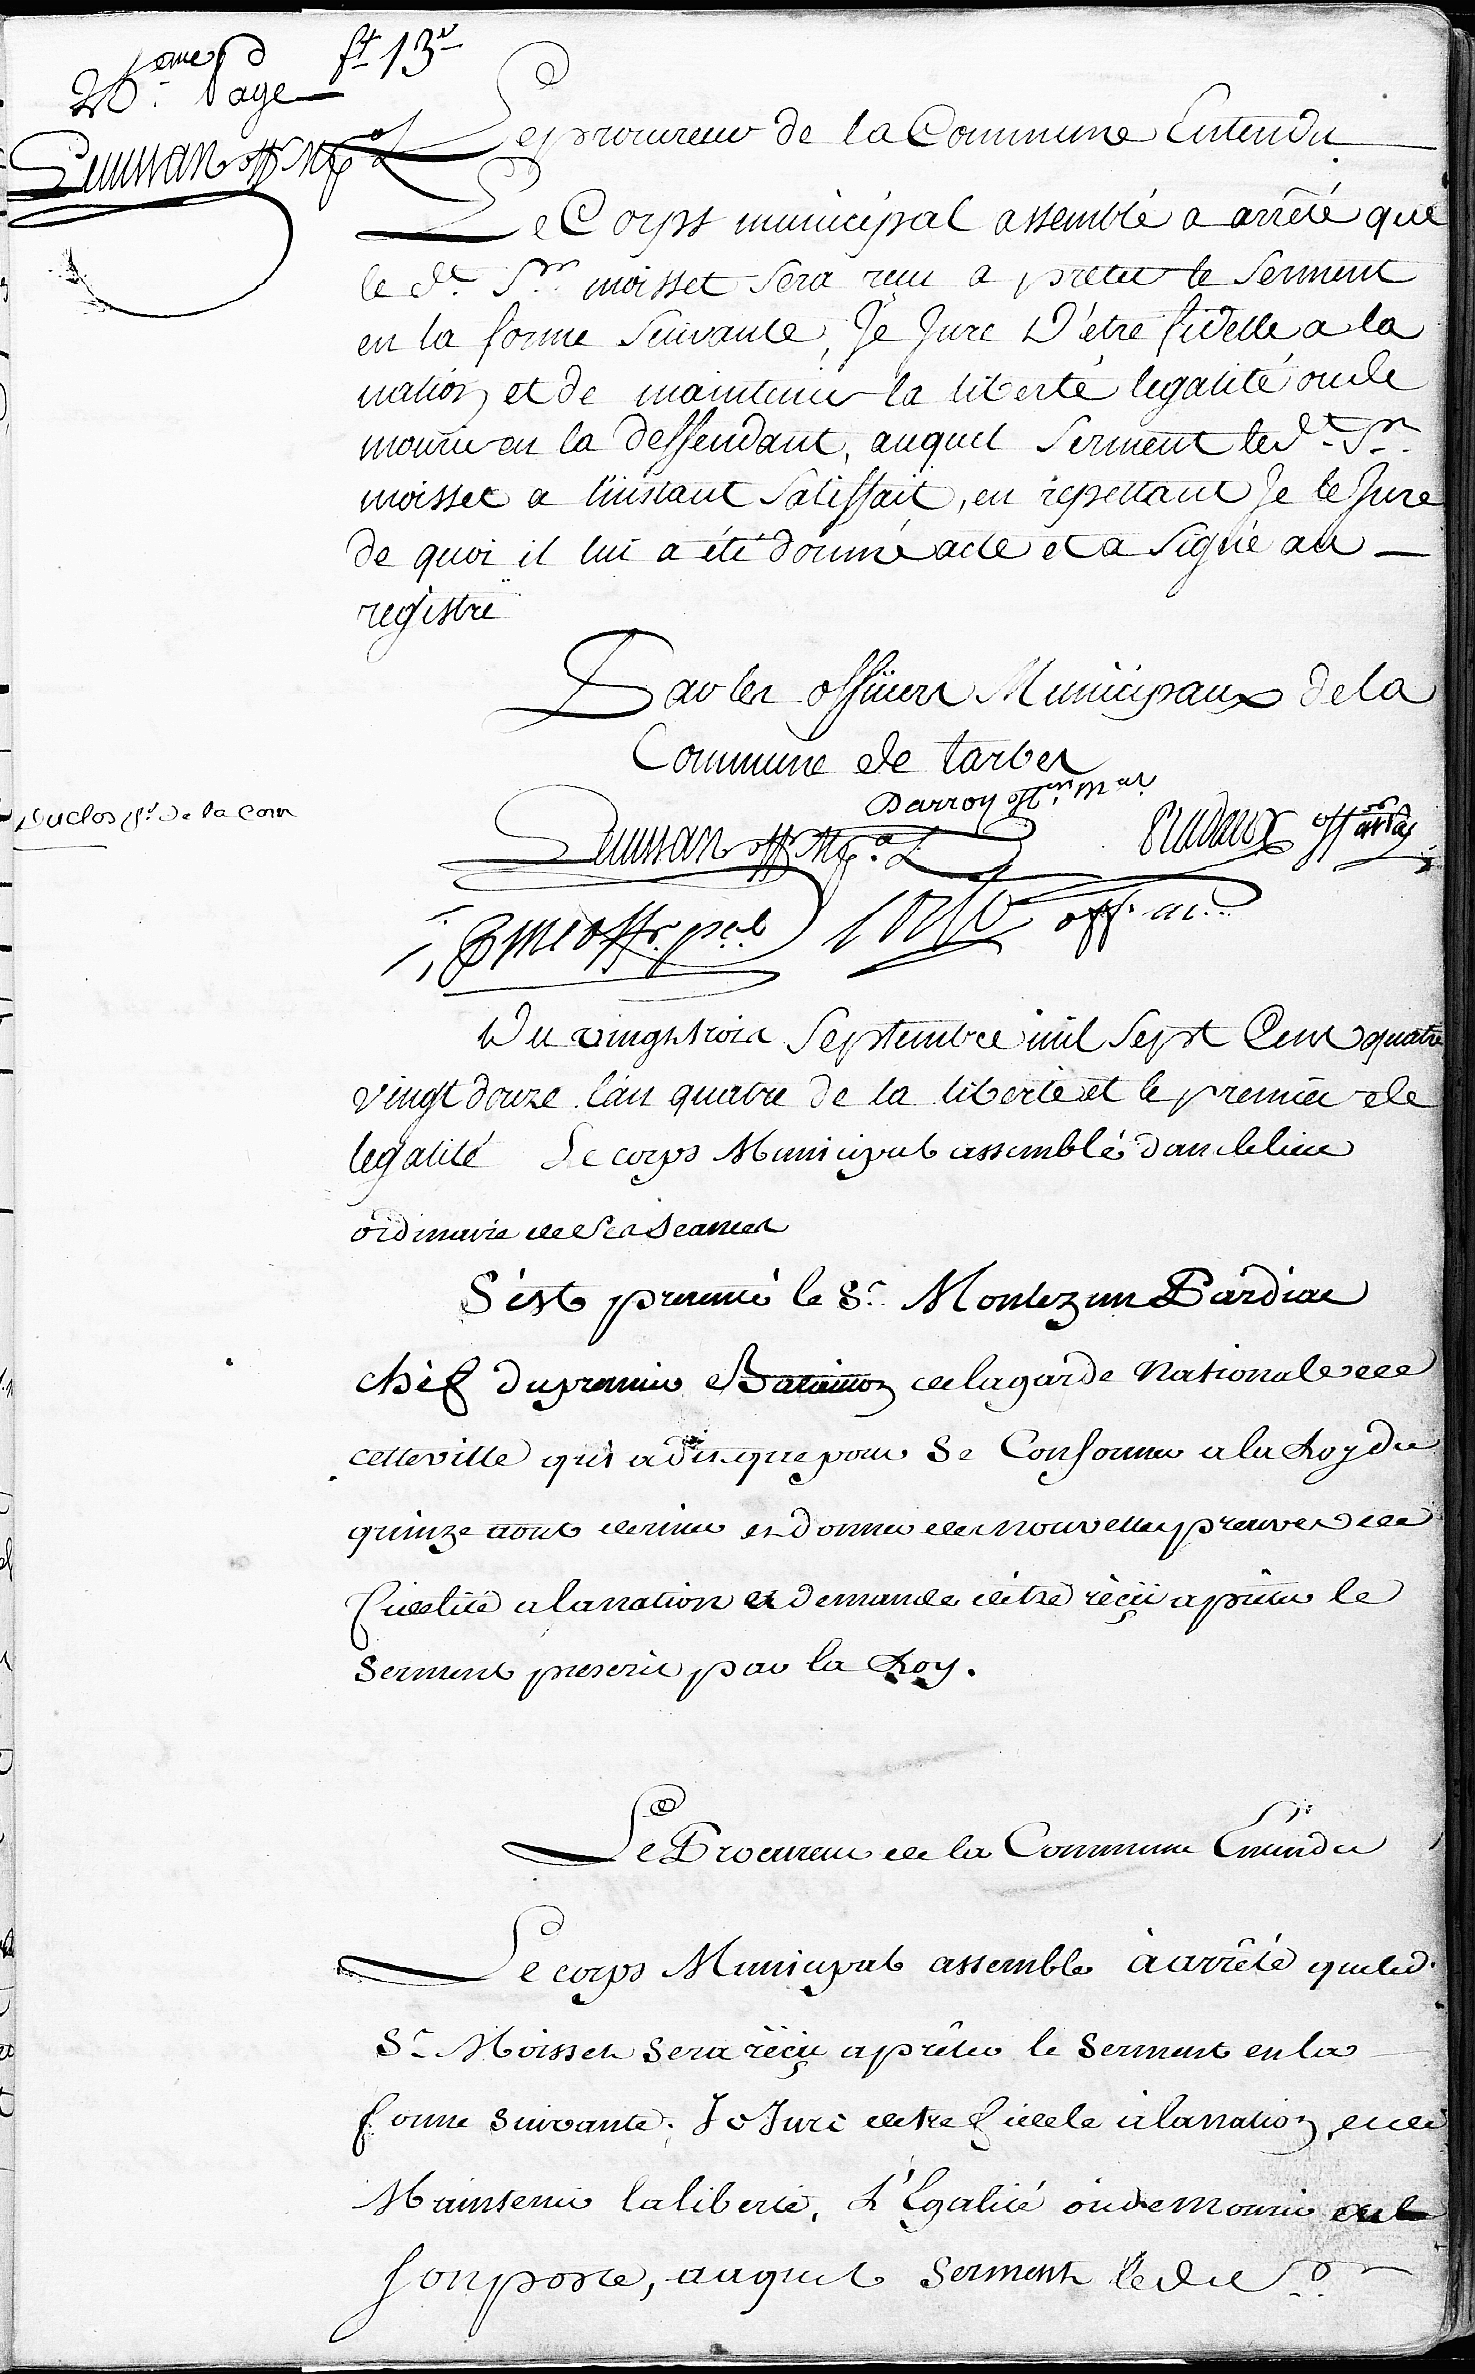 26.eme Page ft 13v
Leprocureur de la Commune Entendu
Le Corps municipal assemblé a arrêté que
le dt. Sr. moisset sera reçu a preter le serment
en la forme suivante, Je Jure D'etre fidelle a la
nation et de maintenir la liberté legalité ou de
mourir en la deffendant, auquel serment le dt. Sr.
moisset a l'instant satisfait, en repettant Je le Jure
de quoi il lui a été donné acte et a signé au
registre
Par les officiers Municipaux de la
Commune de tarbes
Duclos pr. De la Com
Darroy offer. mal.
off. m.
Du vingt trois septembre mil sept Cent quatre
vingt douze l'an quatre de la liberté et le premier de
legalité Le corps Municipal assemblé dans le lieu
ordinaire de ses seances
S'est presenté le Sr. Montezun Pardiac
chef du premier Bataillon de la garde Nationale de
cette ville qui a dit que pour se Conformer a la Loy du
quinze aout dernier et donner des nouvelles preuves de
fidelité a la nation il demande d'etre réçu a prêter le
serment prescrit par la Loy.
Le Procureur de la Commune Entendu
Le corps Municipal assemblé à arrêté que led.
Sr. Moisset sera réçu a prêter le serment en la
forme suivante. Je Jure d'etre fidele a la nation, et de
Maintenir la liberté, L'Egalité ou de mourir
son poste, auquel serment ledit Sr.